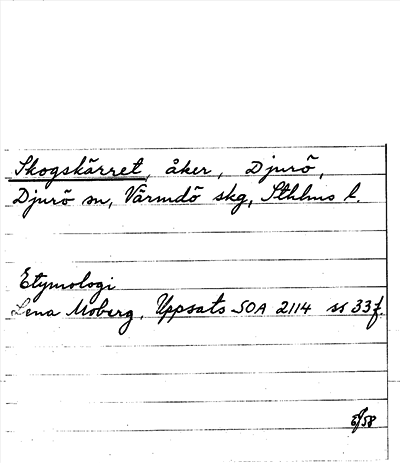 Skogskärret, åker, Djurö,
Djurö sn, Värmdö skg, Sthlms l.
Etymologi
Lena Moberg, Uppsats SOA 2114 ss 33 f.